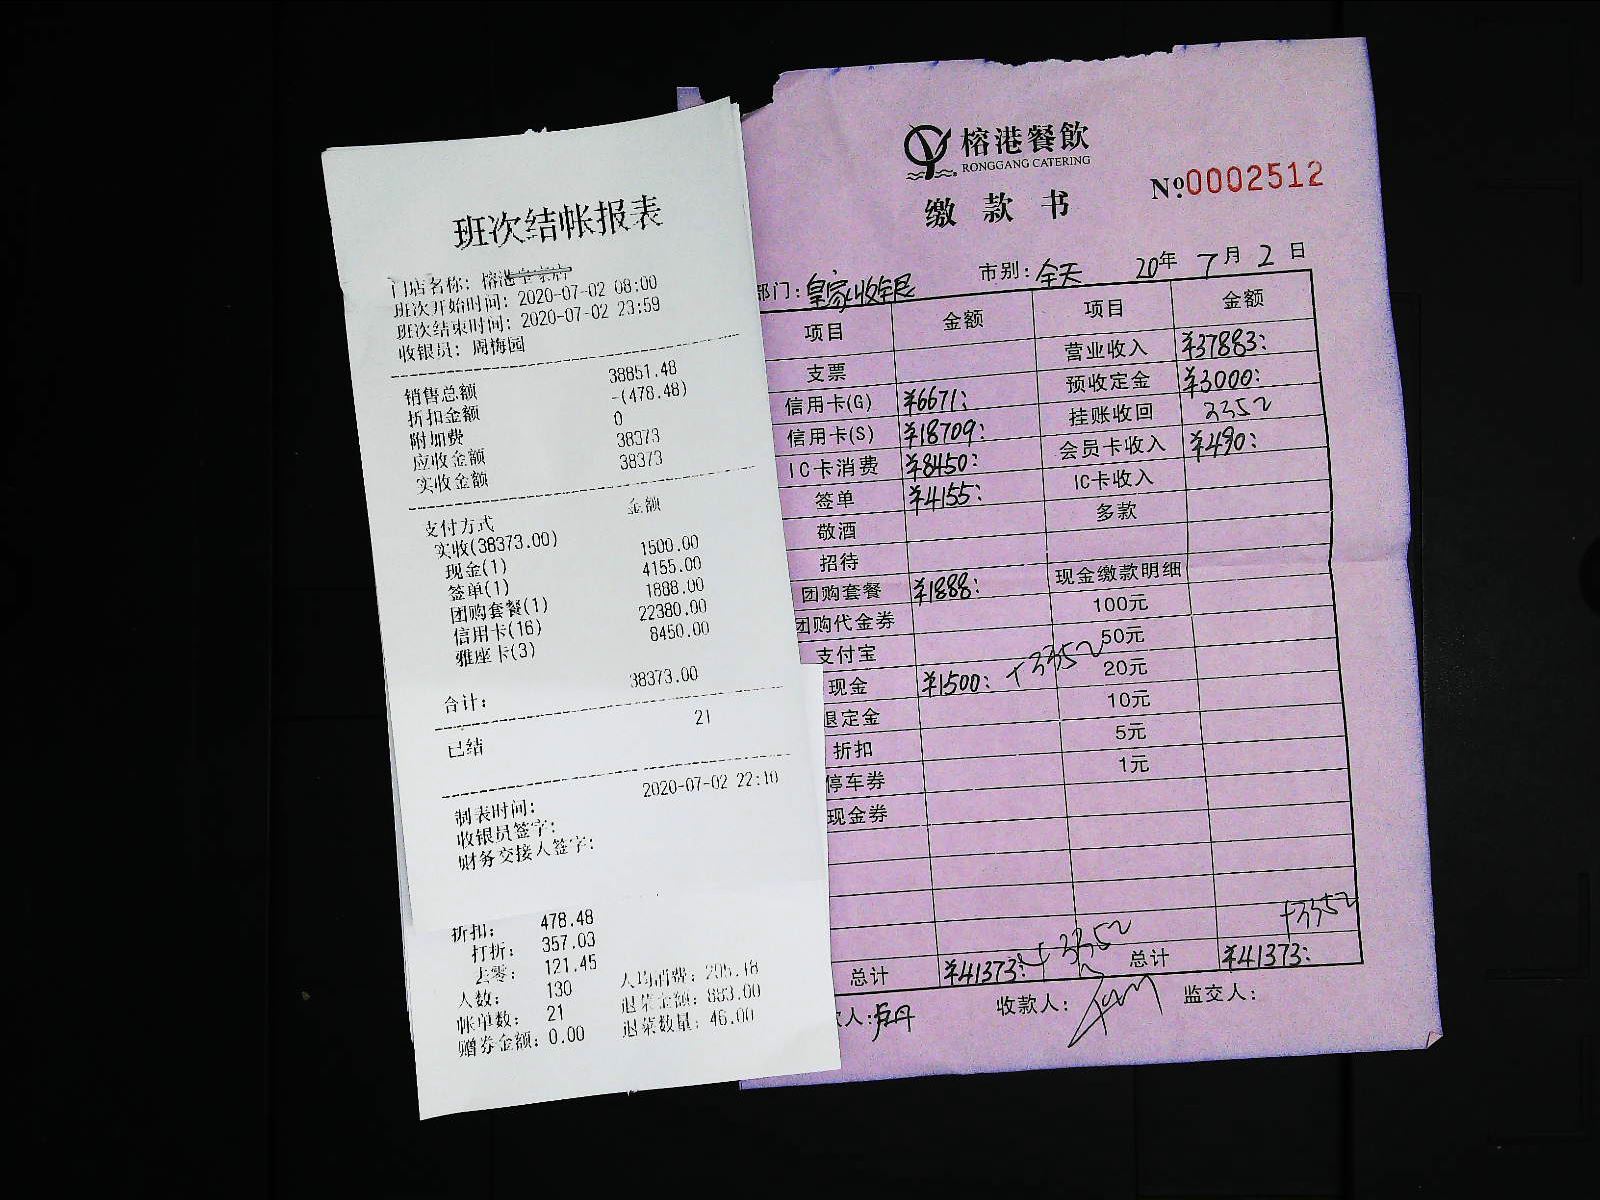 班次结帐报表
门店名称：榕港
班次开始时间：2020-07-02 08:00
班次结束时间：2020-07-02 23:59
收银员：周梅园
销售总额 38851.48
折扣金额 -(478.48)
附加费 0
应收金额 38373
实收金额 38373
支付方式 金额
实收(38373.00)
现金(1) 1500.00
签单(1) 4155.00
团购套餐(1) 1888.00
信用卡(16) 22380.00
雅座卡(3) 8450.00
合计： 38373.00
已结 21
制表时间： 2020-07-02 22:10
收银员签字：
财务交接人签字：
折扣： 478.48
打折： 357.03
去零： 121.45
人数： 130 人均消费：295.18
帐单数： 21 退菜金额：883.00
赠券金额：0.00 退菜数量：46.00
榕港餐飲
RONGGANG CATERING
缴款书
№0002512
部门：皇家收银 市别：全天 20年7月2日
项目 金额 项目 金额
支票 营业收入 ¥37883：
信用卡(G) ¥6671： 预收定金 ¥3000：
信用卡(S) ¥18709： 挂账收回 3352
IC卡消费 ¥8450： 会员卡收入 ¥490：
签单 ¥4155： IC卡收入
敬酒 多款
招待
团购套餐 ¥1888： 现金缴款明细
团购代金券 100元
支付宝 50元
现金 ¥1500：+3352 20元
退定金 10元
折扣 5元
停车券 1元
现金券
+3352 +3352
总计 ¥41373： 总计 ¥41373：
款人： 收款人： 监交人：